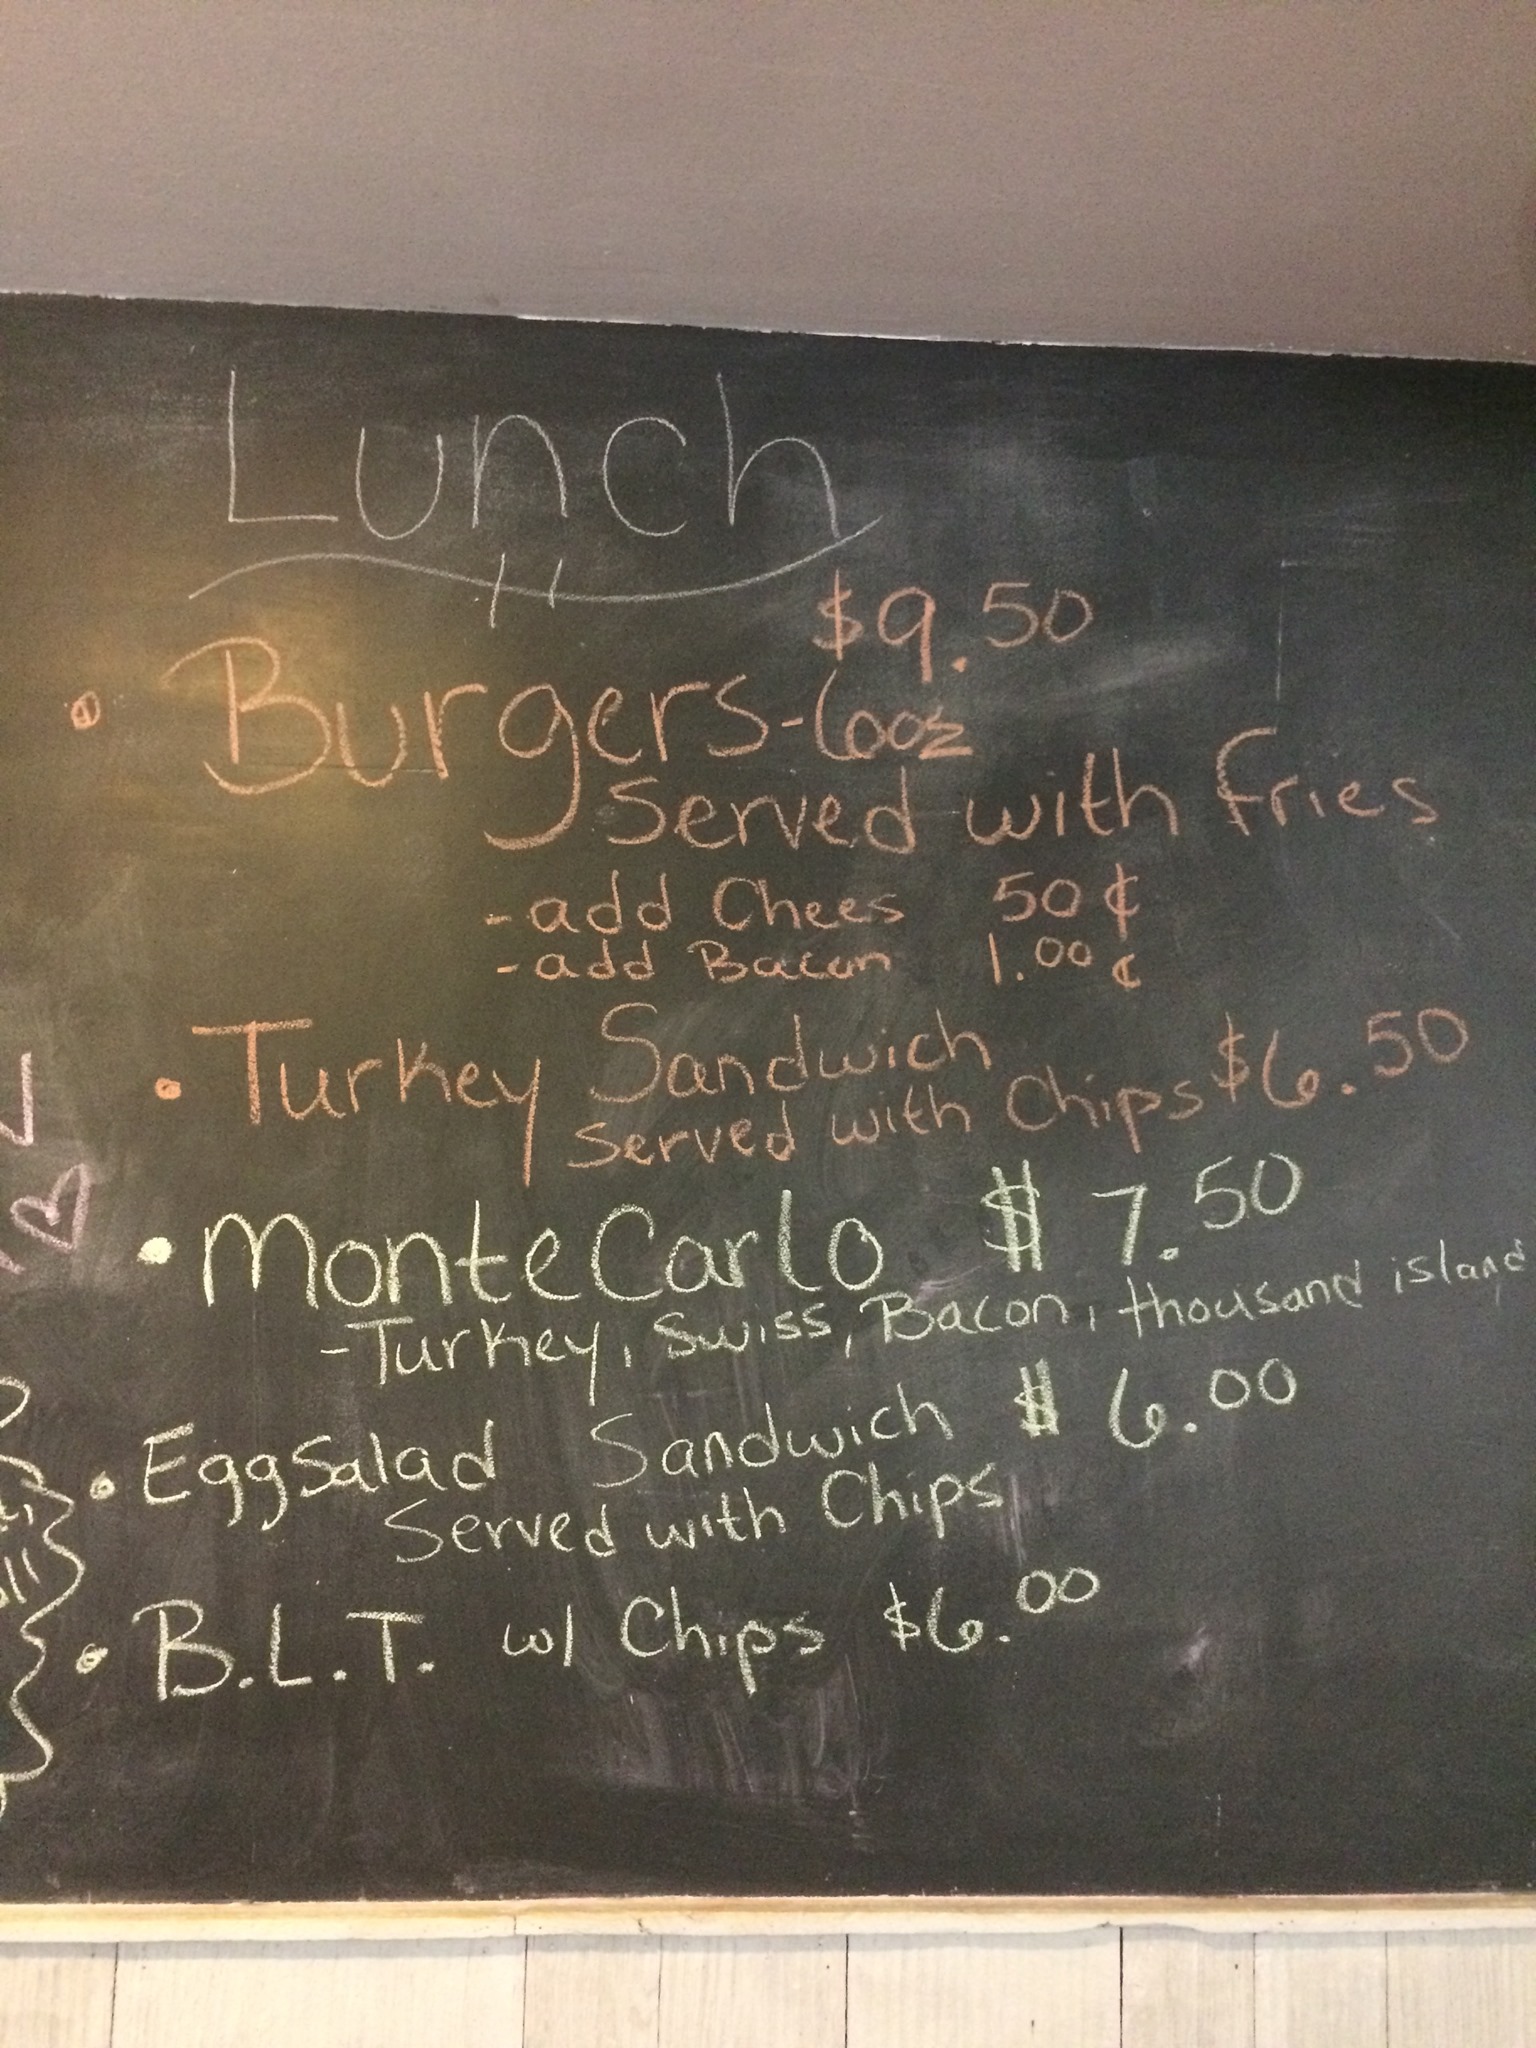 Lunch
$9.50
Burgers-6oz
Served with Fries
-add Chees 50¢
-add Bacon 1.00¢
Turkey Sandwich
served with Chips $6.50
Monte Carlo $7.50
-Turkey, Swiss, Bacon, thousand island
Egg Salad Sandwich $6.00
Served with Chips
B.L.T. w/ Chips $6.00